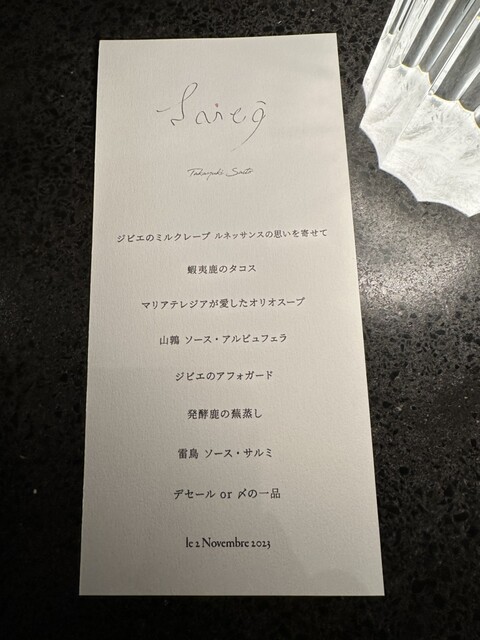 Takayuki Saito
ジビエのミルクレープ ルネッサンスの思いを寄せて
蝦夷鹿のタコス
マリアテレジアが愛したオリオスープ
山鶉 ソース・アルビュフェラ
ジビエのアフォガード
発酵鹿の蕪蒸し
雷鳥 ソース・サルミ
デセール or 〆の一品
le 2 Novembre 2023